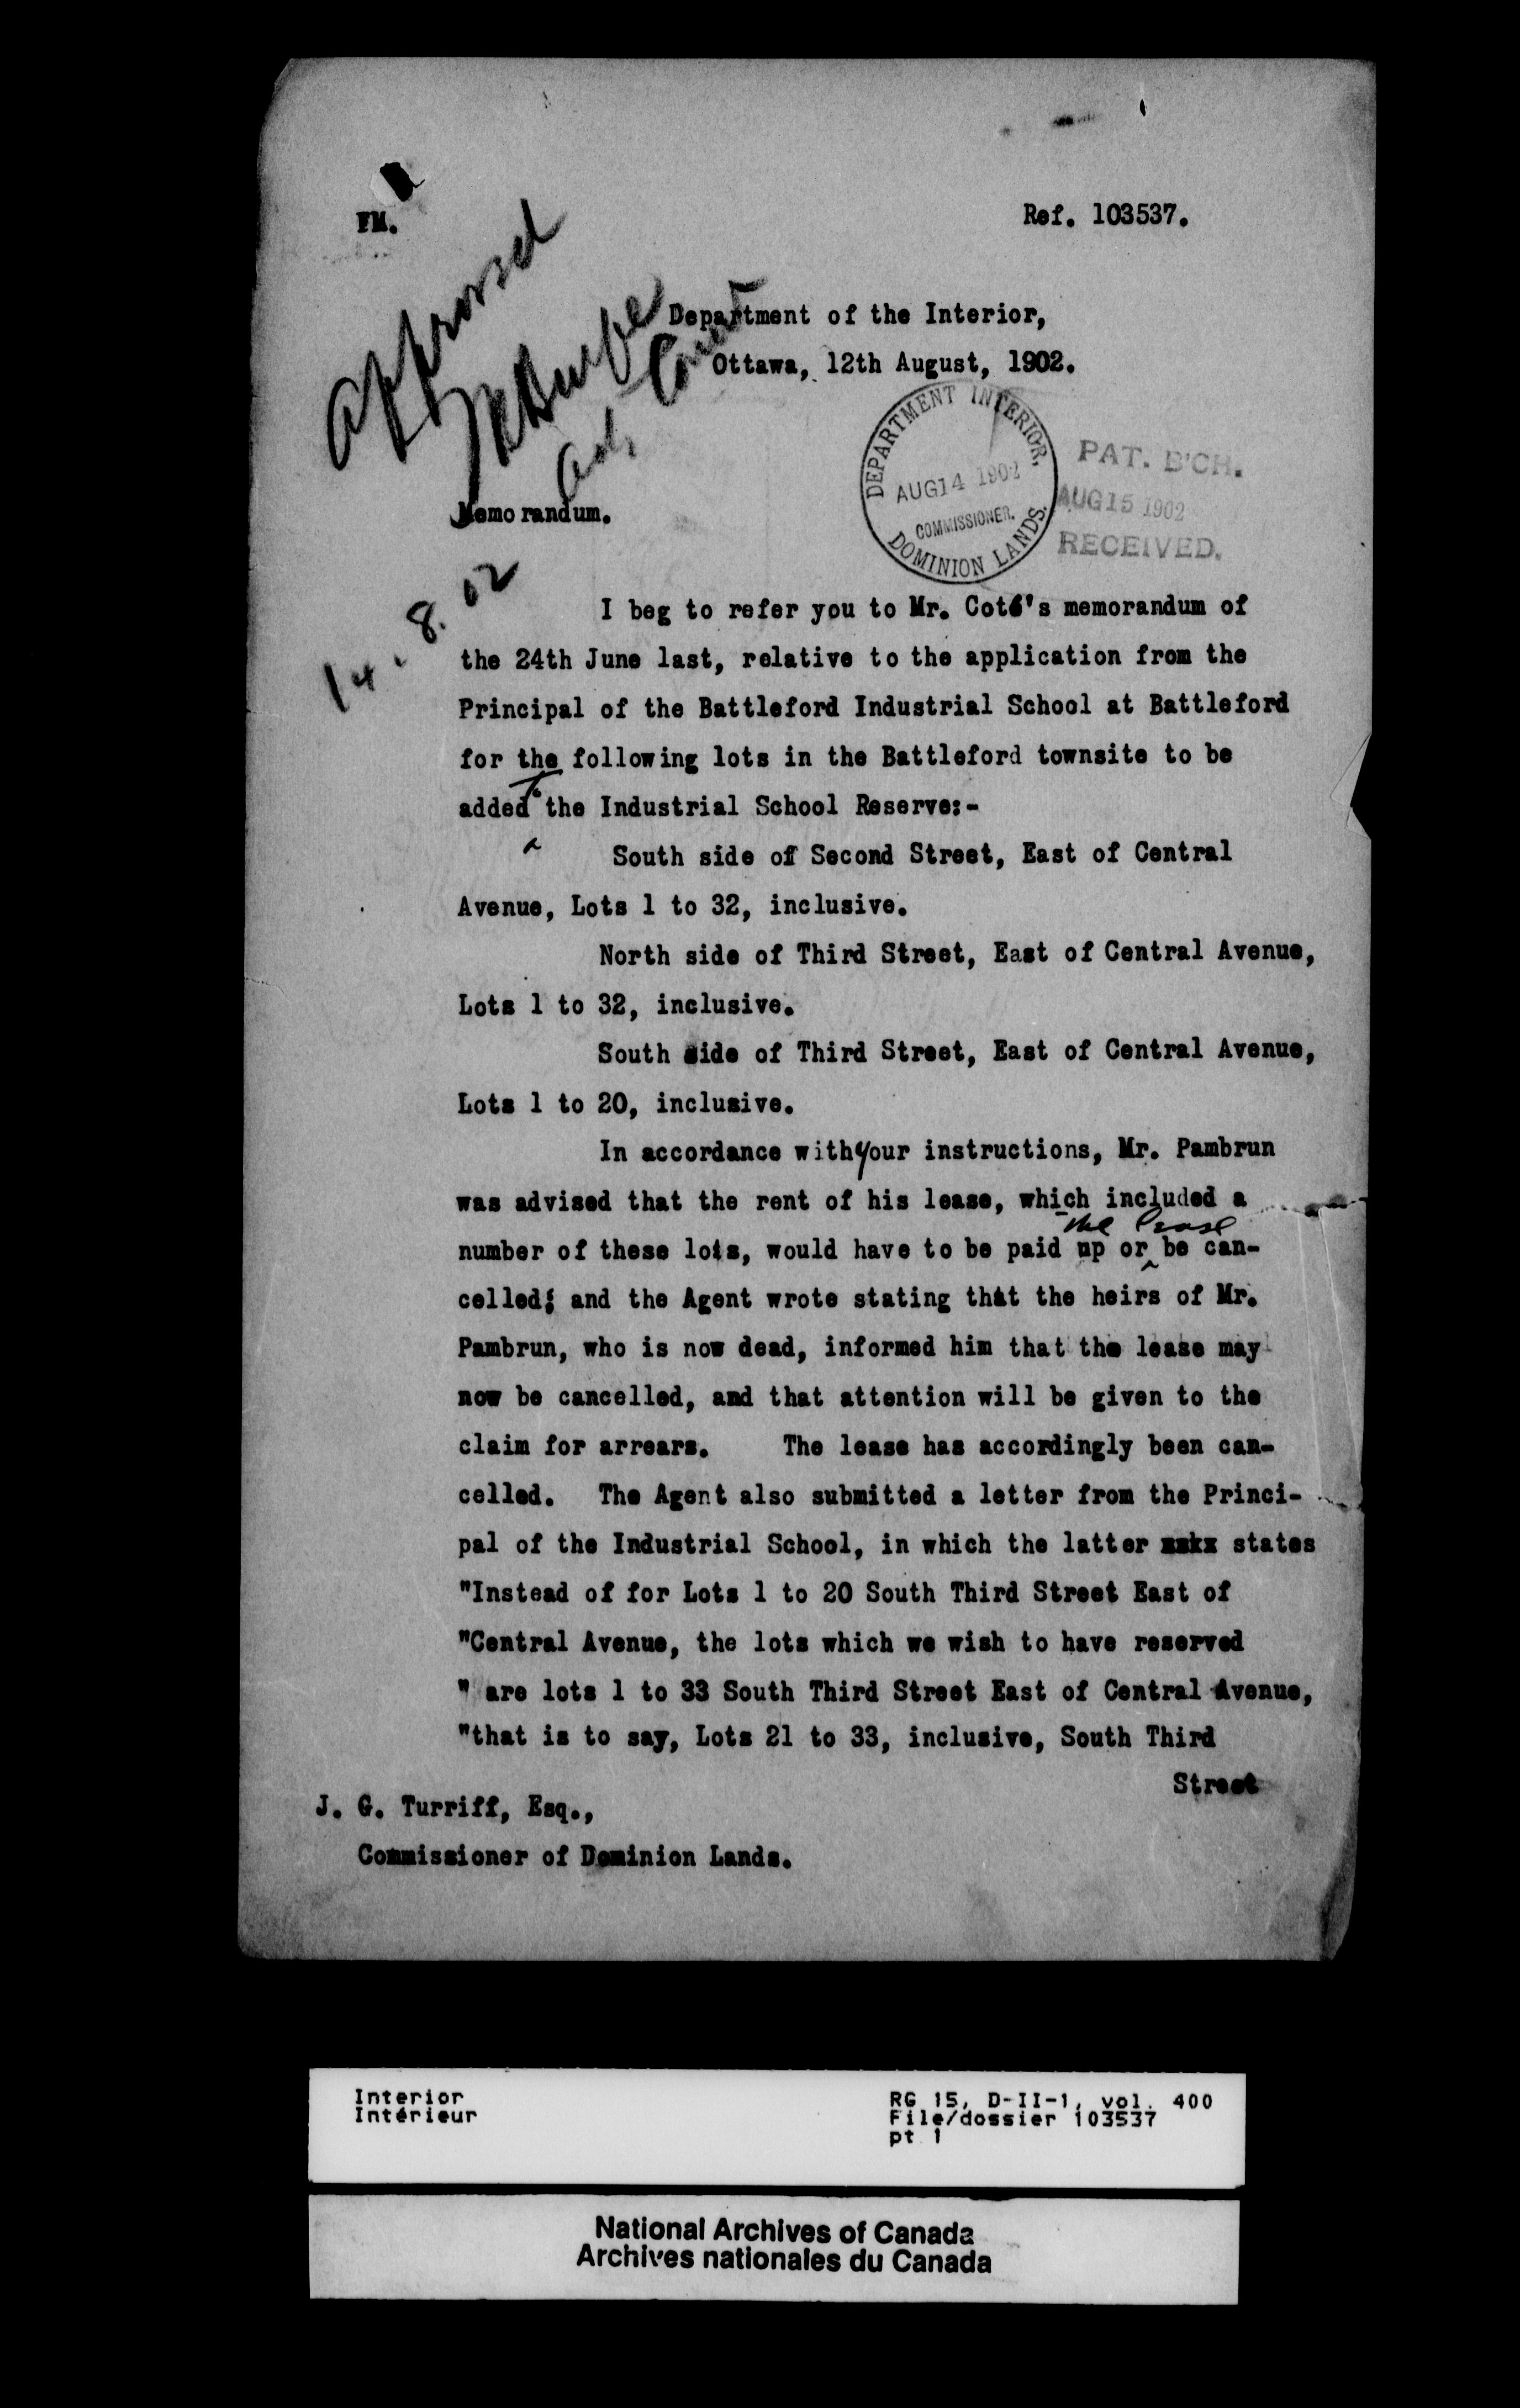 FM.
Ref. 103537.
Approved
Department of the Interior,
Ottawa, 12th August, 1902.
DEPARTMENT INTERIOR,
AUG 14 1902
COMMISSIONER.
DOMINION LANDS.
PAT. B'CH.
AUG 15 1902
RECEIVED.
Memorandum.
14.8.02
I beg to refer you to Mr. Coté's memorandum of
the 24th June last, relative to the application from the
Principal of the Battleford Industrial School at Battleford
for the following lots in the Battleford townsite to be
added to the Industrial School Reserve:-
South side of Second Street, East of Central
Avenue, Lots 1 to 32, inclusive.
North side of Third Street, East of Central Avenue,
Lots 1 to 32, inclusive.
South side of Third Street, East of Central Avenue,
Lots 1 to 20, inclusive.
In accordance with your instructions, Mr. Pambrun
was advised that the rent of his lease, which included a
the lease
number of these lots, would have to be paid up or be can-
celled; and the Agent wrote stating that the heirs of Mr.
Pambrun, who is now dead, informed him that the lease may
now be cancelled, and that attention will be given to the
claim for arrears. The lease has accordingly been can-
celled. The Agent also submitted a letter from the Princi-
pal of the Industrial School, in which the latter states
"Instead of for Lots 1 to 20 South Third Street East of
"Central Avenue, the lots which we wish to have reserved
" are lots 1 to 33 South Third Street East of Central Avenue,
"that is to say, Lots 21 to 33, inclusive, South Third
Street
J. G. Turriff, Esq.,
Commissioner of Dominion Lands.
Interior
Intérieur
RG 15, D-II-1, vol. 400
File/dossier 103537
pt 1
National Archives of Canada
Archives nationales du Canada